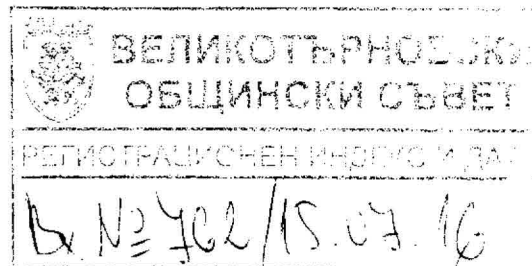 ВЕЛИКОТЪРНОВСКИ
ОБЩИНСКИ СЪВЕТ
РЕГИСТРАЦИОНЕН ИНДЕКС И ДАТА
Вх. № 762/15.07.16